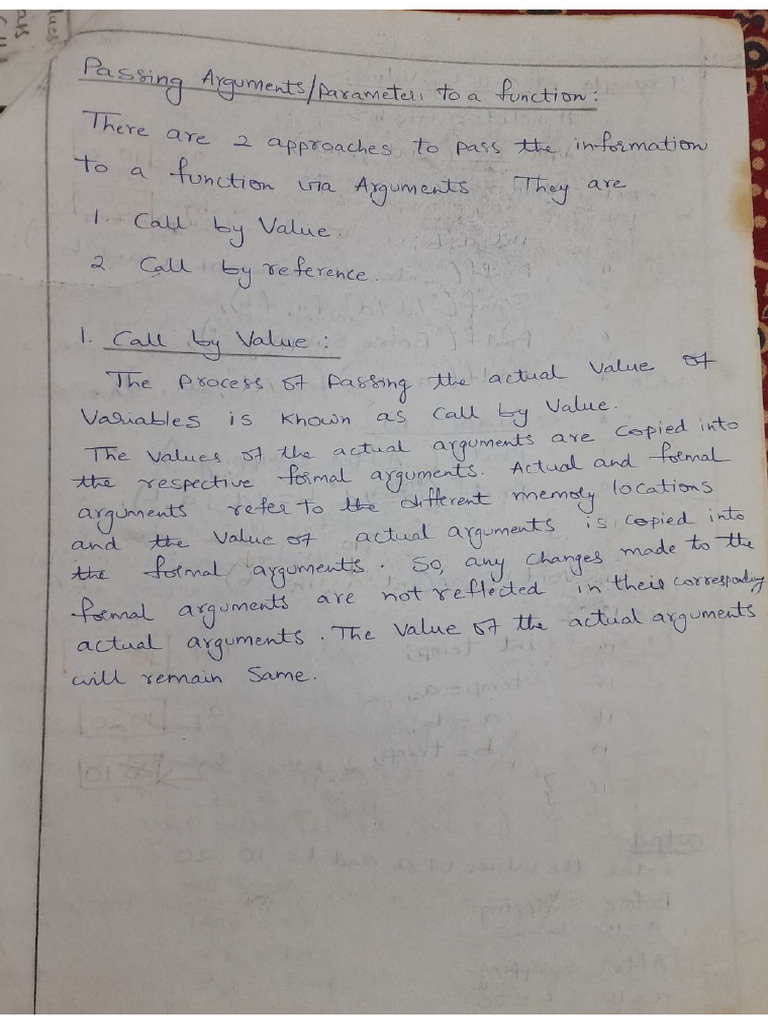 Passing Arguments/Parameters to a function:
There are 2 approaches to pass the information
to a function via Arguments. They are
1. Call by Value.
2. Call by reference.
1. Call by Value:
The process of passing the actual value of
variables is known as call by value.
The values of the actual arguments are copied into
the respective formal arguments. Actual and formal
arguments refer to the different memory locations
and the value of actual arguments is copied into
the formal arguments. So, any changes made to the
formal arguments are not reflected in their corresponding
actual arguments. The value of the actual arguments
will remain same.